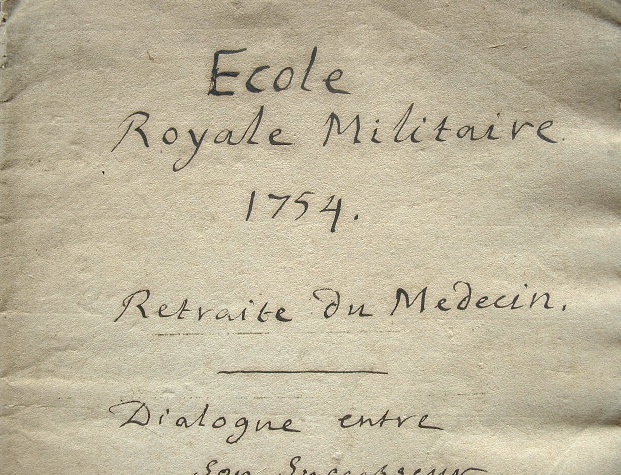 Ecole
Royale Militaire
1754.
Retraite du Medecin.
Dialogue entre
son Successeur